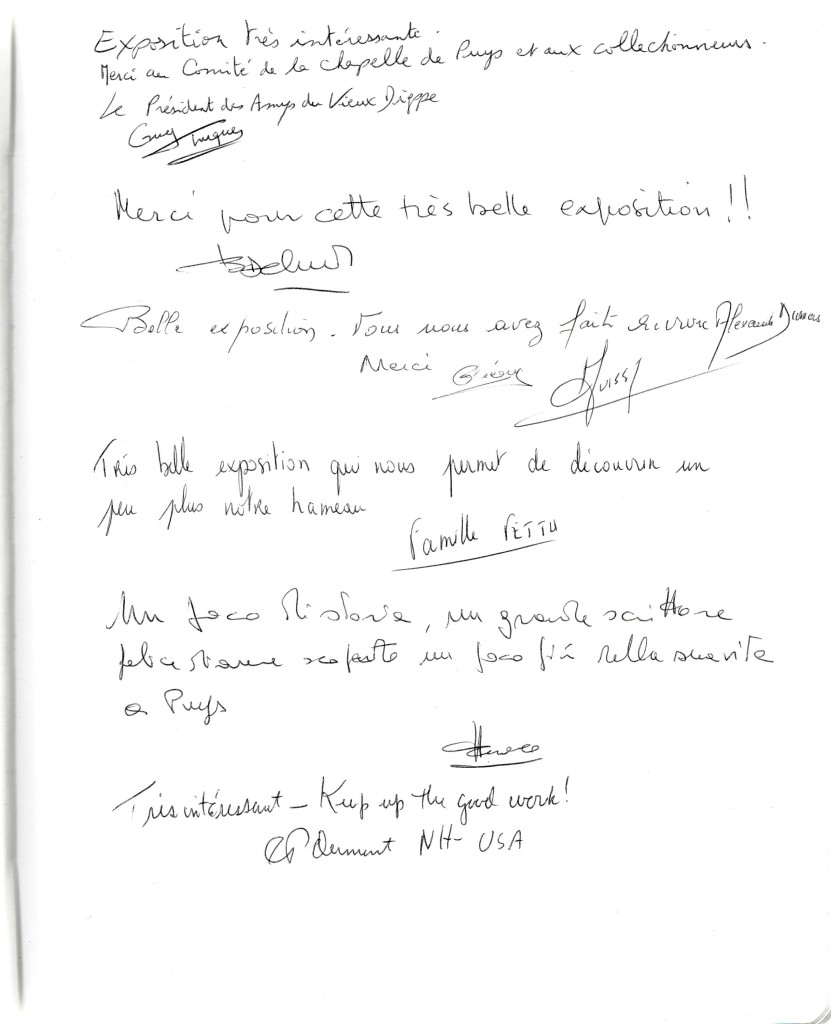 Exposition très intéressante.
Merci au Comité de la chapelle de Puys et aux collectionneurs.
Le Président des Amys du Vieux Dieppe
Guy
Merci pour cette très belle exposition !!
Belle exposition. Vous nous avez fait revivre Alexandre Dumas
Merci
Très belle exposition qui nous permet de découvrir un
peu plus notre hameau
Famille PETTU
Un poco di storia, un grande scrittore
un poco più sulla sua vita
a Puys
Très intéressant – Keep up the good work!
NH- USA